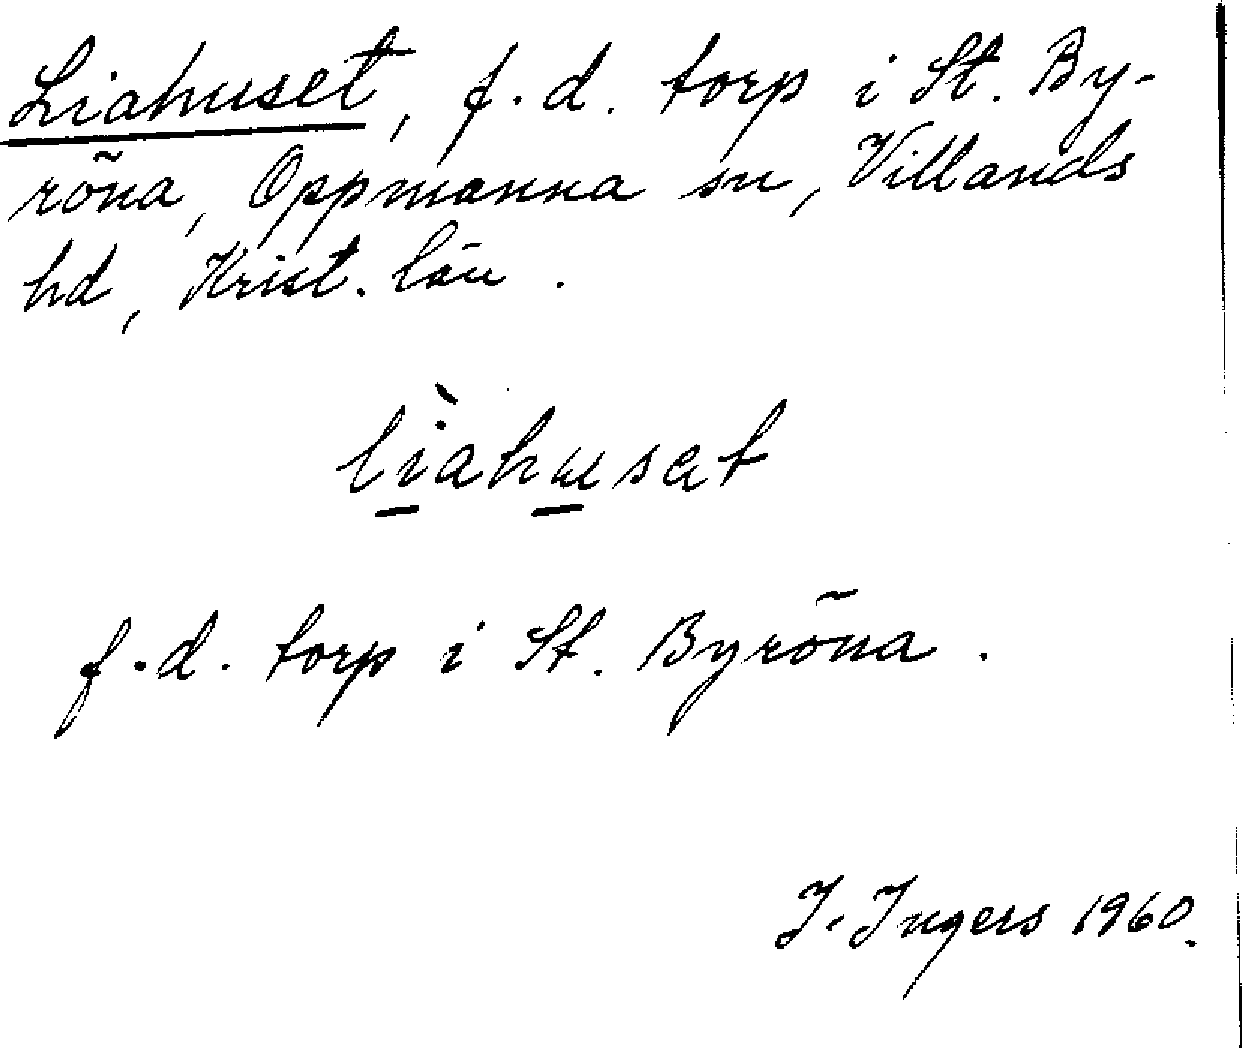 Liahuset, f.d. torp i St. By-
röna, Oppmanna sn, Villands
hd, Krist. län.
lìahusat
f.d. torp i St. Byröna.
I. Ingers 1960.